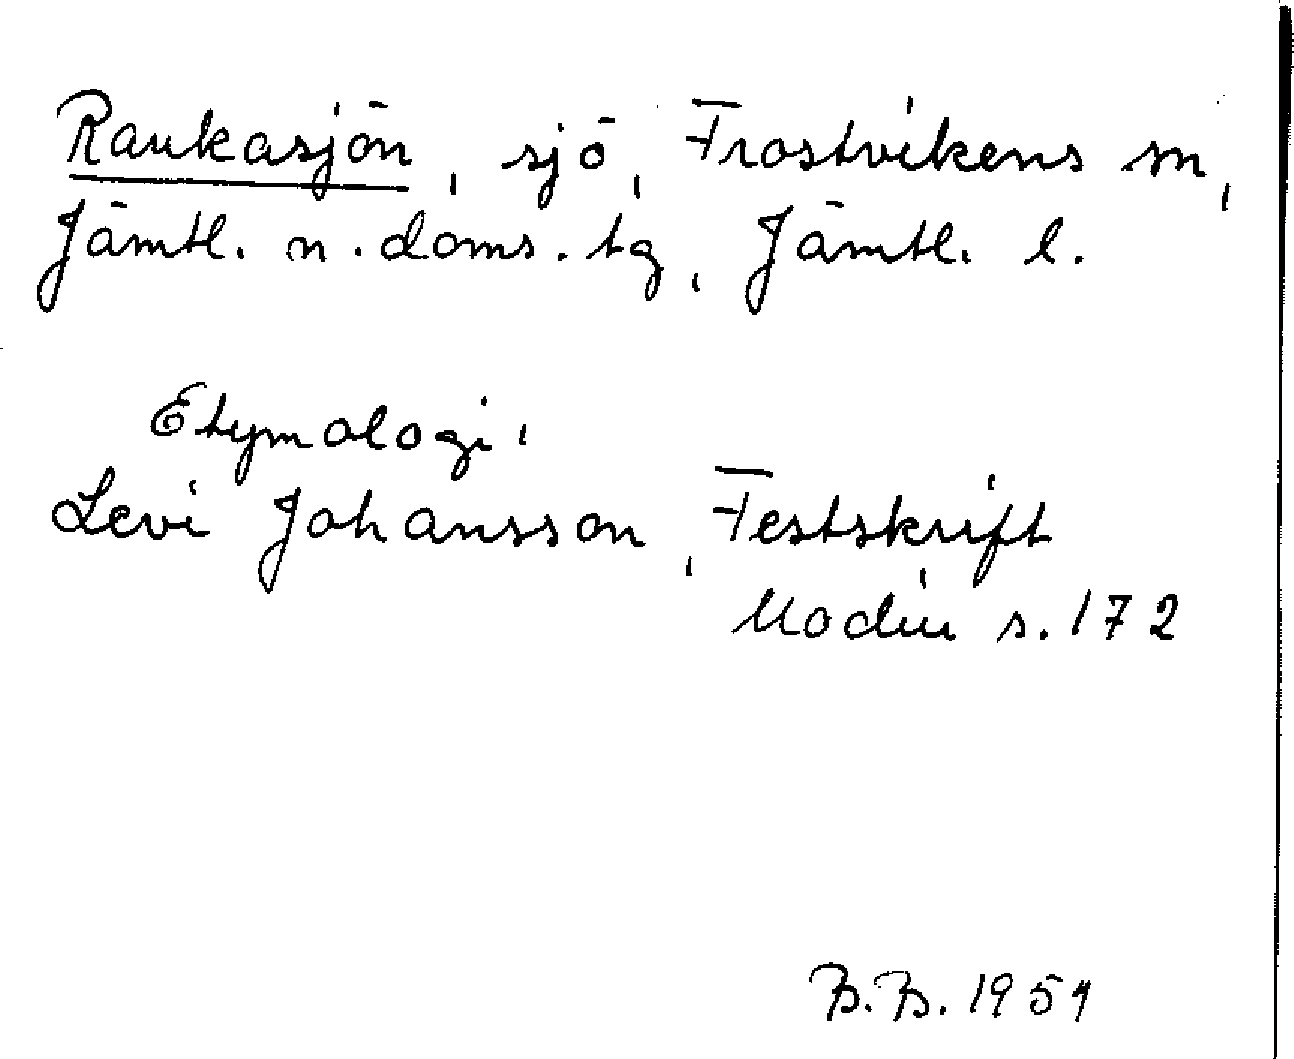 Raukasjön, sjö, Frostvikens sn,
Jämtl. n. doms. tg, Jämtl. l.
Etymologi:
Levi Johansson, Festskrift
Modin s. 172
B.B. 1951